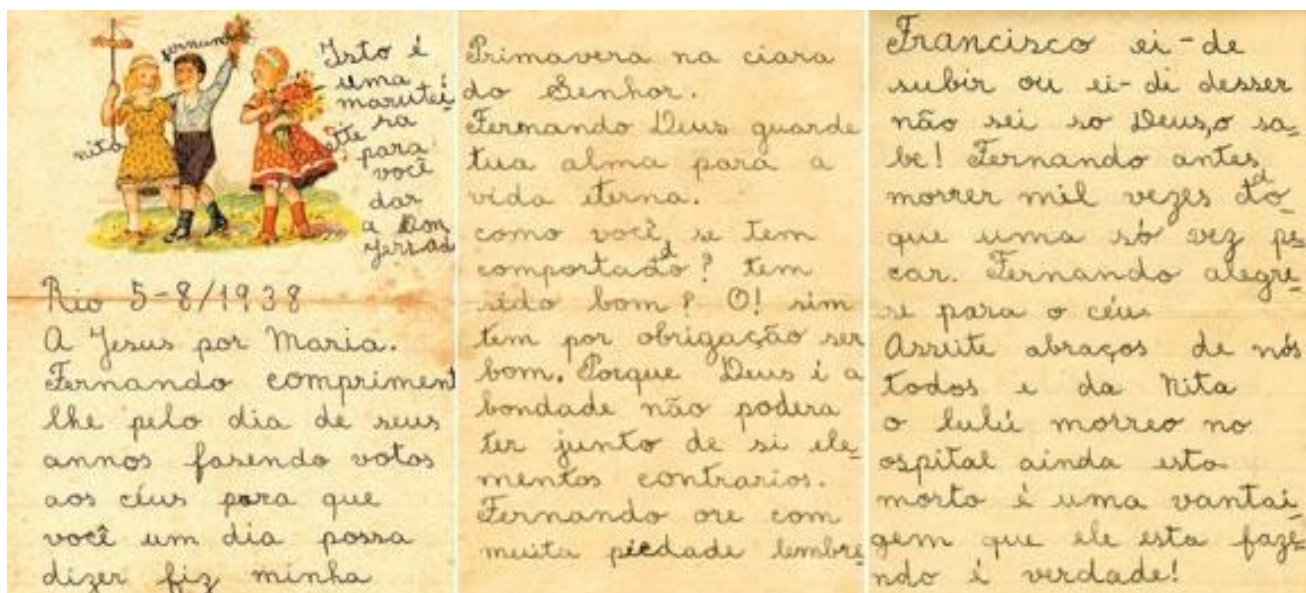 fernando
nita
Isto é
uma
marutei
ra
para
você
dar
a Don
Jerrad
Rio 5-8/1938
A Jesus por Maria.
Fernando compriment
lhe pelo dia de seus
annos fasendo votos
aos céus para que
você um dia possa
dizer fiz minha
Primavera na ciara
do Senhor.
Fernando Deus guarde
tua alma para a
vida eterna.
como você se tem
comportado? tem
sido bom? O! sim
tem por obrigação ser
bom. Porque Deus é a
bondade não podera
ter junto de si ele-
mentos contrarios.
Fernando ore com
muita piedade lembre
Francisco ei-de
subir ou ei-di desser
não sei so Deus,o sa-
be! Fernando antes
morrer mil vezes do
que uma só vez pe
car. Fernando alegre-
se para o céu
Asseite abraços de nós
todos e da Nita
o lulú morreo no
ospital ainda esta
morto é uma vantai
gem que ele esta faze-
ndo é verdade!